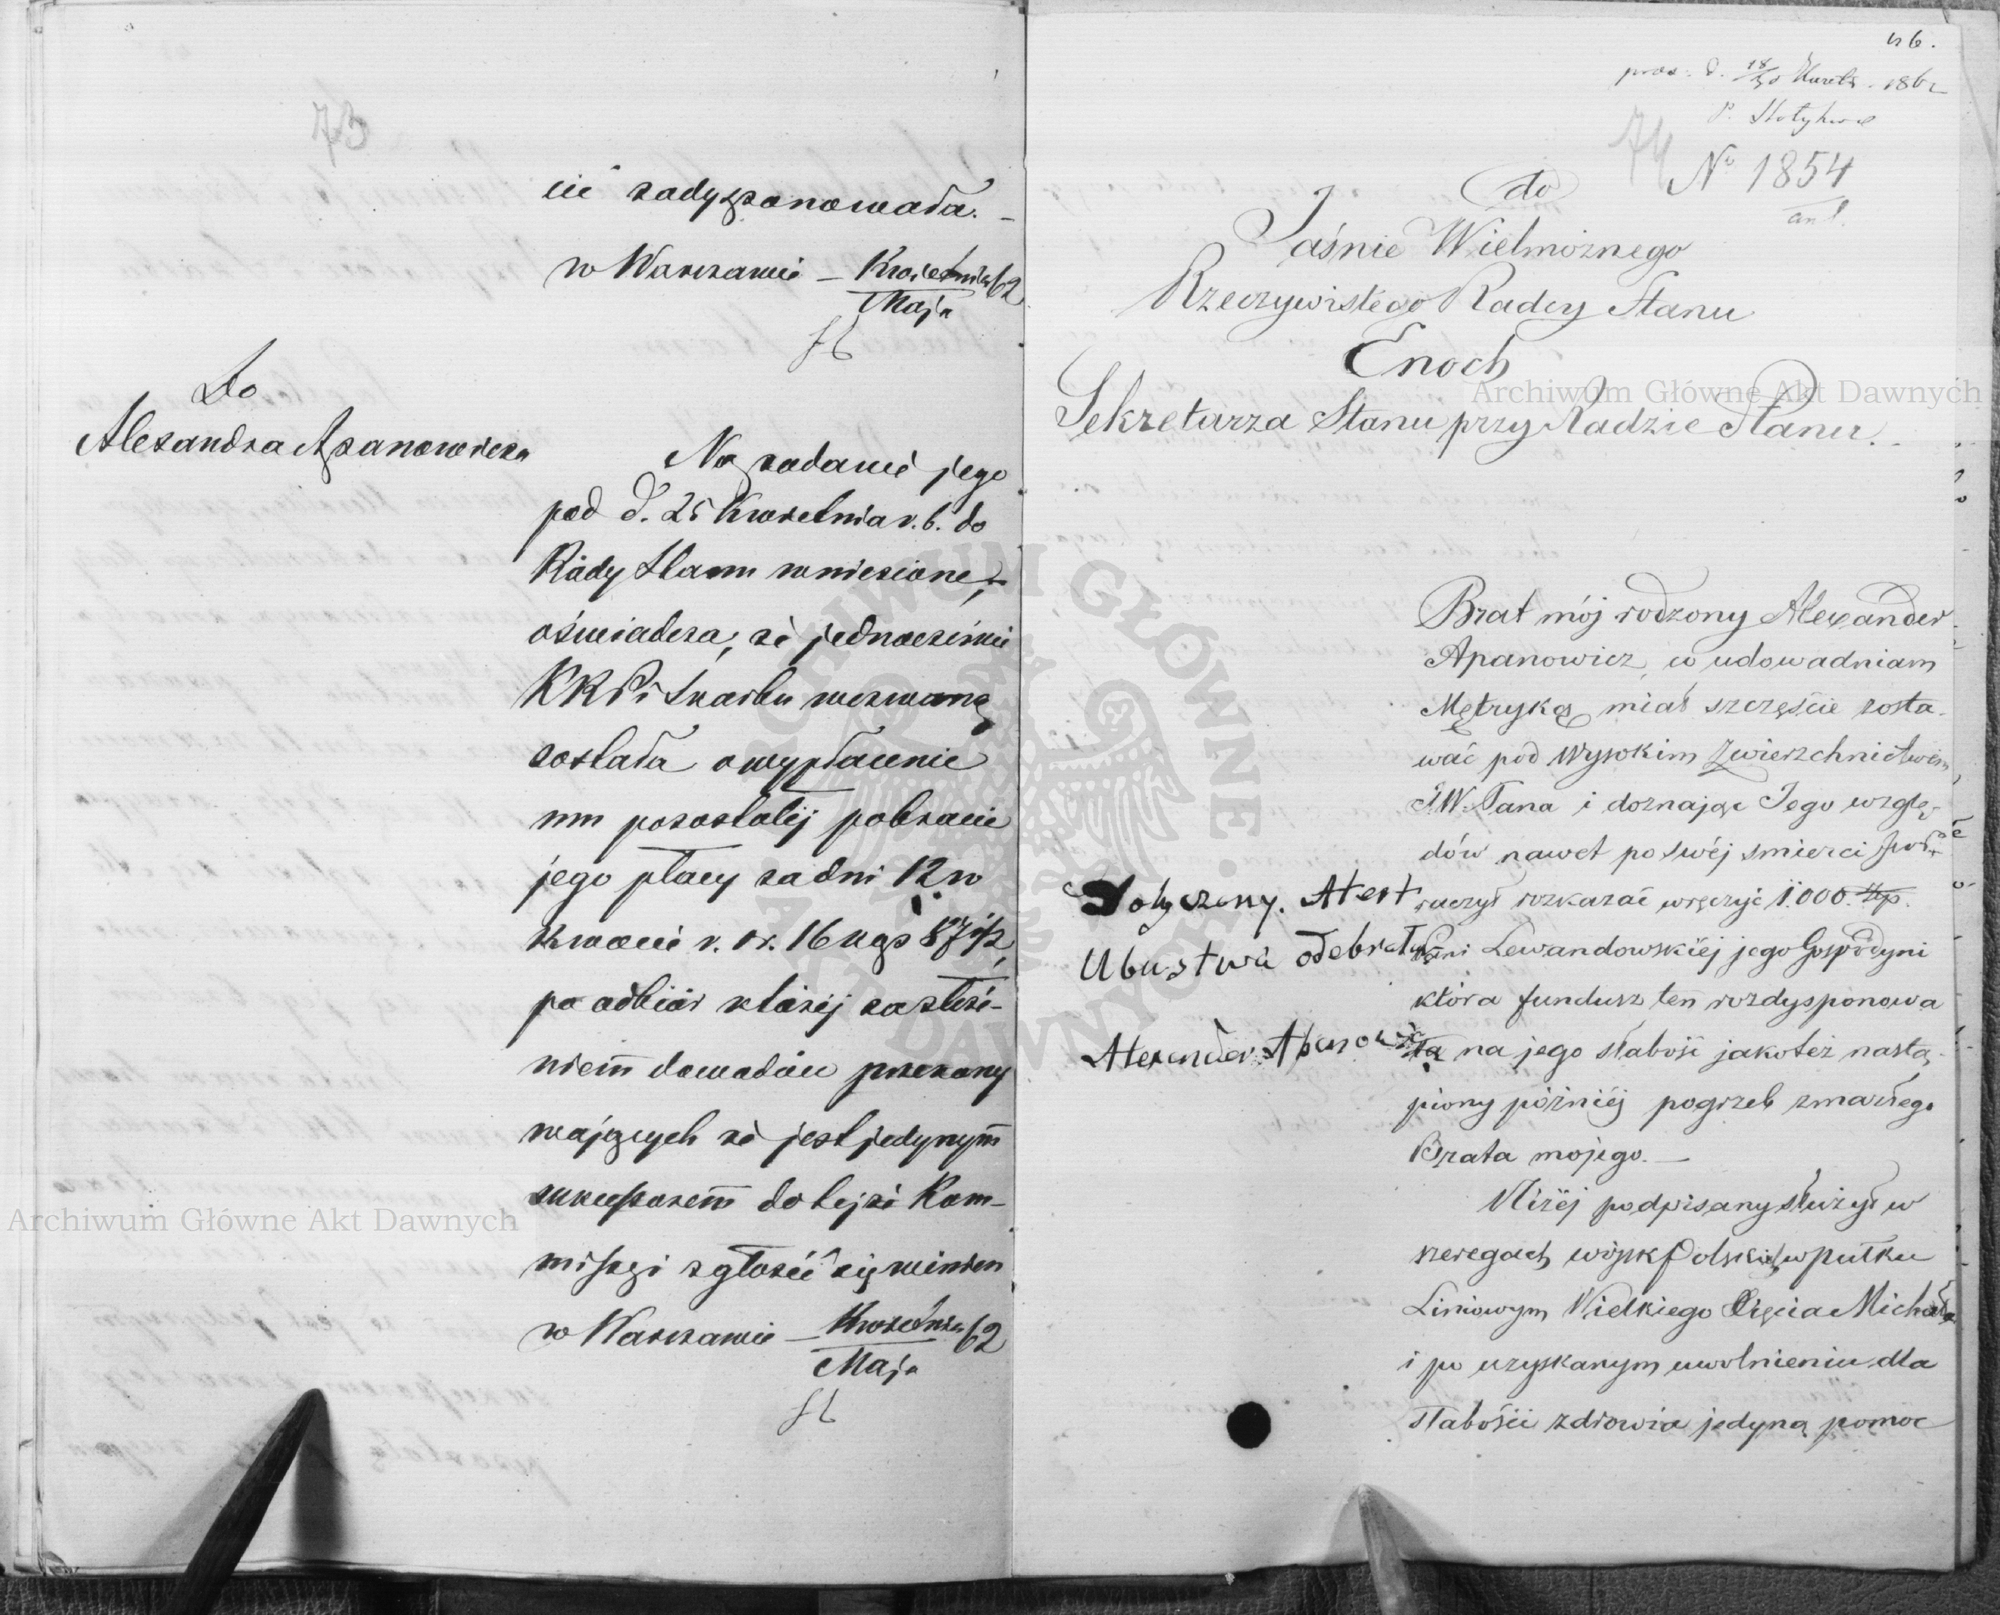 73
nie zadysponowała. –
w Warszawie – Kwietnia/Maja 62
Do
Alexandra Apanowicza
Na podanie jego
pod d. 25 Kwietnia r. b. do
Rady Stanu wniesione,
oświadcza, że jednocześnie
KRPi Skarbu wezwaną
została o wypłacenie
mu pozostałej po bracie
jego płacy za dni 12 w
kwocie r. sr. 16 kops 87 1/2,
po odbiór której za złoże-
niem dowodów przekony
wających że jest jedynym
sukcessorem do tejże Kom-
missyi zgłosić się winien
w Warszawie – Kwietnia/Maja 62
46.
prez: d. 18/30 1862
74
No 1854
do
Jaśnie Wielmożnego
Rzeczywistego Radcy Stanu
Enoch
Sekretarza Stanu przy Radzie Stanu.
Brat mój rodzony Alexander
Apanowicz, w udowadniam
Metryką miał szczęście zosta-
wać pod Wysokim Zwierzchnictwem
JW. Pana i doznając Jego wzglę-
dów nawet po swéj smierci
raczył rozkazać wręczyć 1.000. złp.
Pani Lewandowskiéj jego Gospodyni
która fundusz ten rozdysponowa
ła na jego słabość jakoteż nastą-
piony późniéj pogrzeb zmarłego
Brata mojego. –
Niżéj podpisany służył w
szeregach wojsk Polskich w pułku
Liniowym Wielkiego Xięcia Michała
i po uzyskanym uwolnieniu dla
słabości zdrowia jedyną pomoc
Dołyczony. Atest
Ubustwa odebrałem
Alexander Apanowicz
Archiwum Główne Akt Dawnych
Archiwum Główne Akt Dawnych
ARCHIWUM GŁÓWNE AKT DAWNYCH W WARSZAWIE